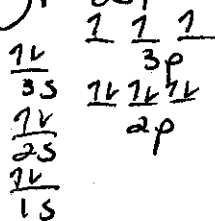 1 1 1
3p
1↓
3s
1↓ 1↓ 1↓
2p
1↓
2s
1↓
1s